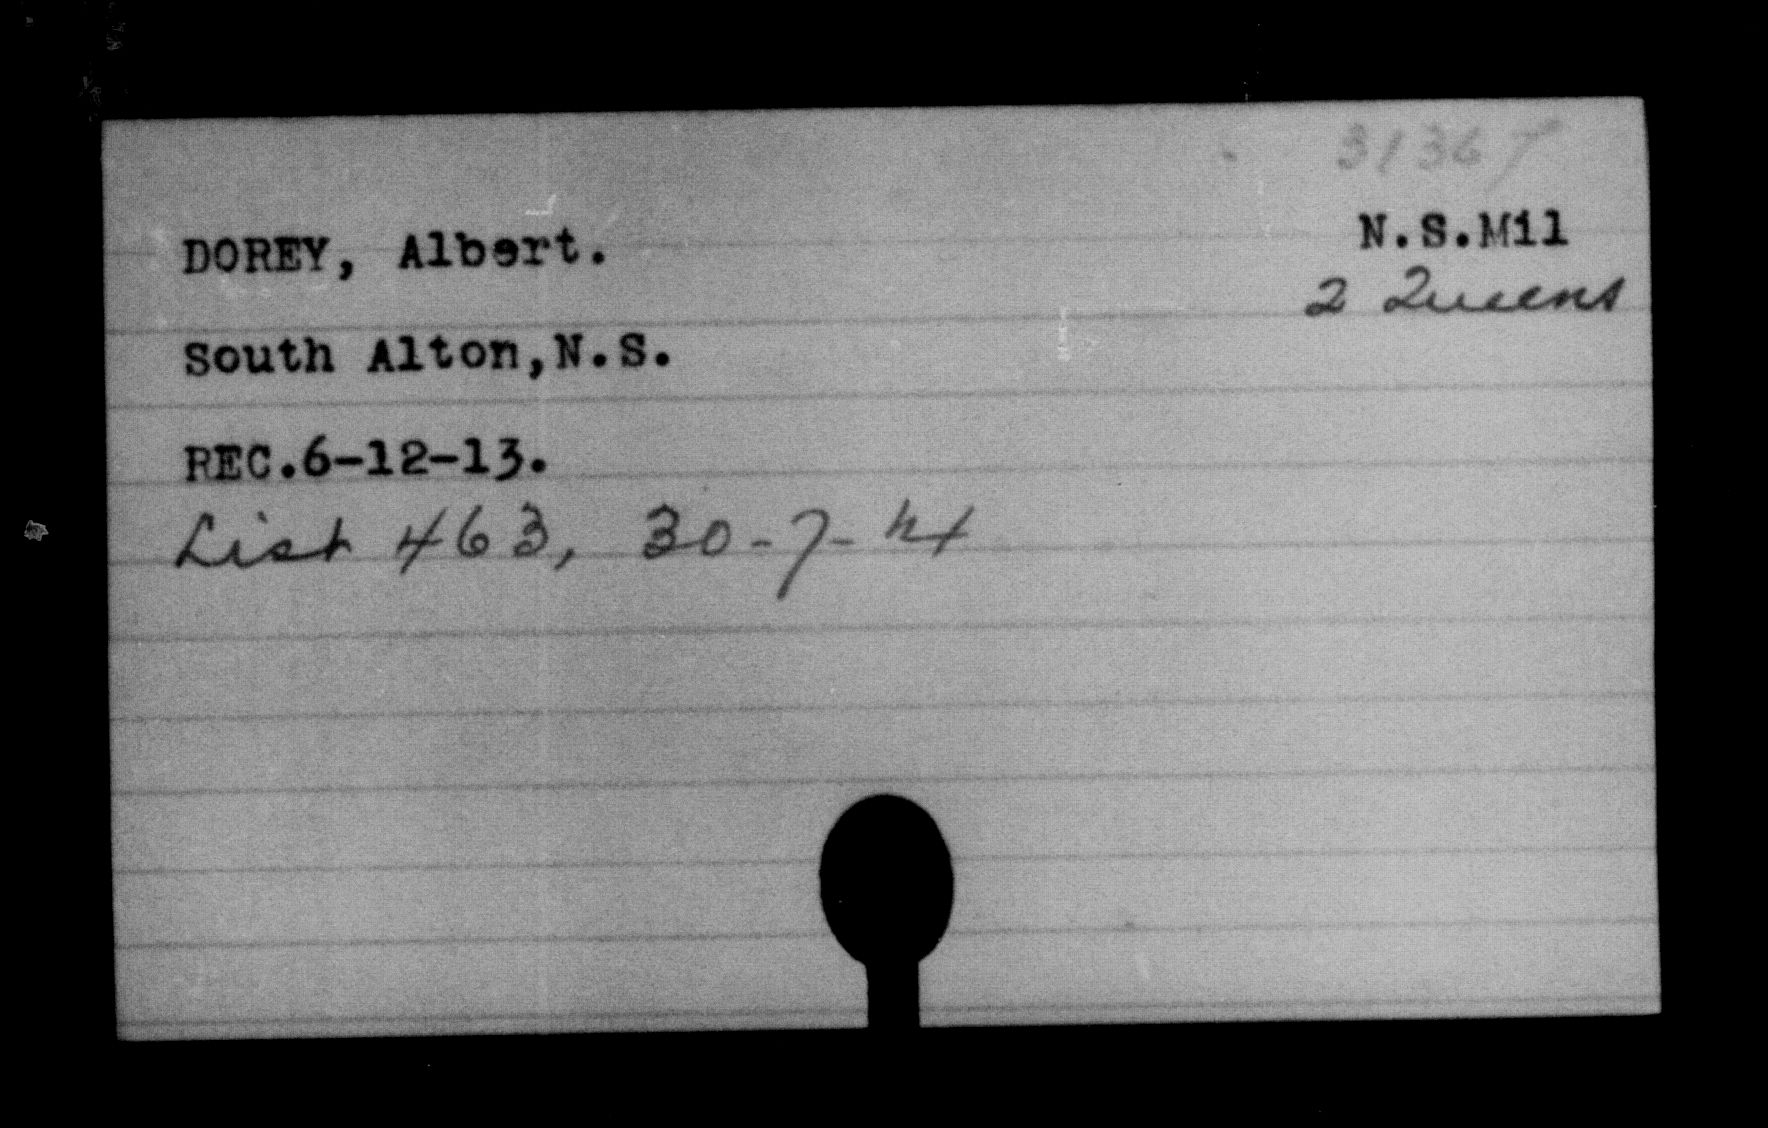 31367
N.S.Mil
DOREY, Albert.
2 Queens
South Alton,N.S.
REC.6-12-13.
List 463, 30-7-14